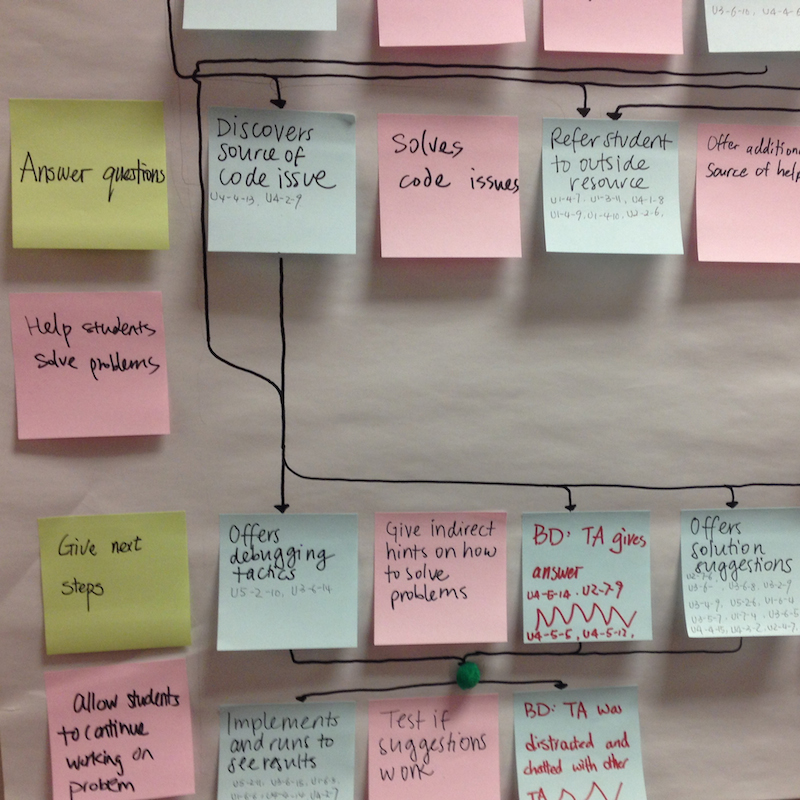 U4-2-9
U3-6-10, U4-4-6
Answer questions
Discovers
source of
code issue
U4-4-13, U4-2-9
Solves
code issues
Refer student
to outside
resource
U1-4-7, U1-3-11, U4-1-8
U1-4-9, U1-4-10, U2-2-6,
Offer addition
source of help
Help students
solve problems
Give next
steps
Offers
debugging
tactics
U5-2-10, U3-6-14
Give indirect
hints on how
to solve
problems
BD: TA gives
answer
U4-5-14, U2-7-9
U4-5-5, U4-5-12,
Offers
solution
suggestions
U2-7-6
U3-6- U3-6-8, U3-2-9
U3-4-9, U5-2-6, U1-6-4
U3-5-7 U1-7-4 U3-6-5
U4-4-15, U4-2-2, U2-4-7
allow students
to continue
working on
problem
Implements
and runs to
see results
U5-2-11, U3-6-15, U1-6-3
U4-2-7
Test if
suggestions
work
BD: TA was
distracted and
chatted with other
TA